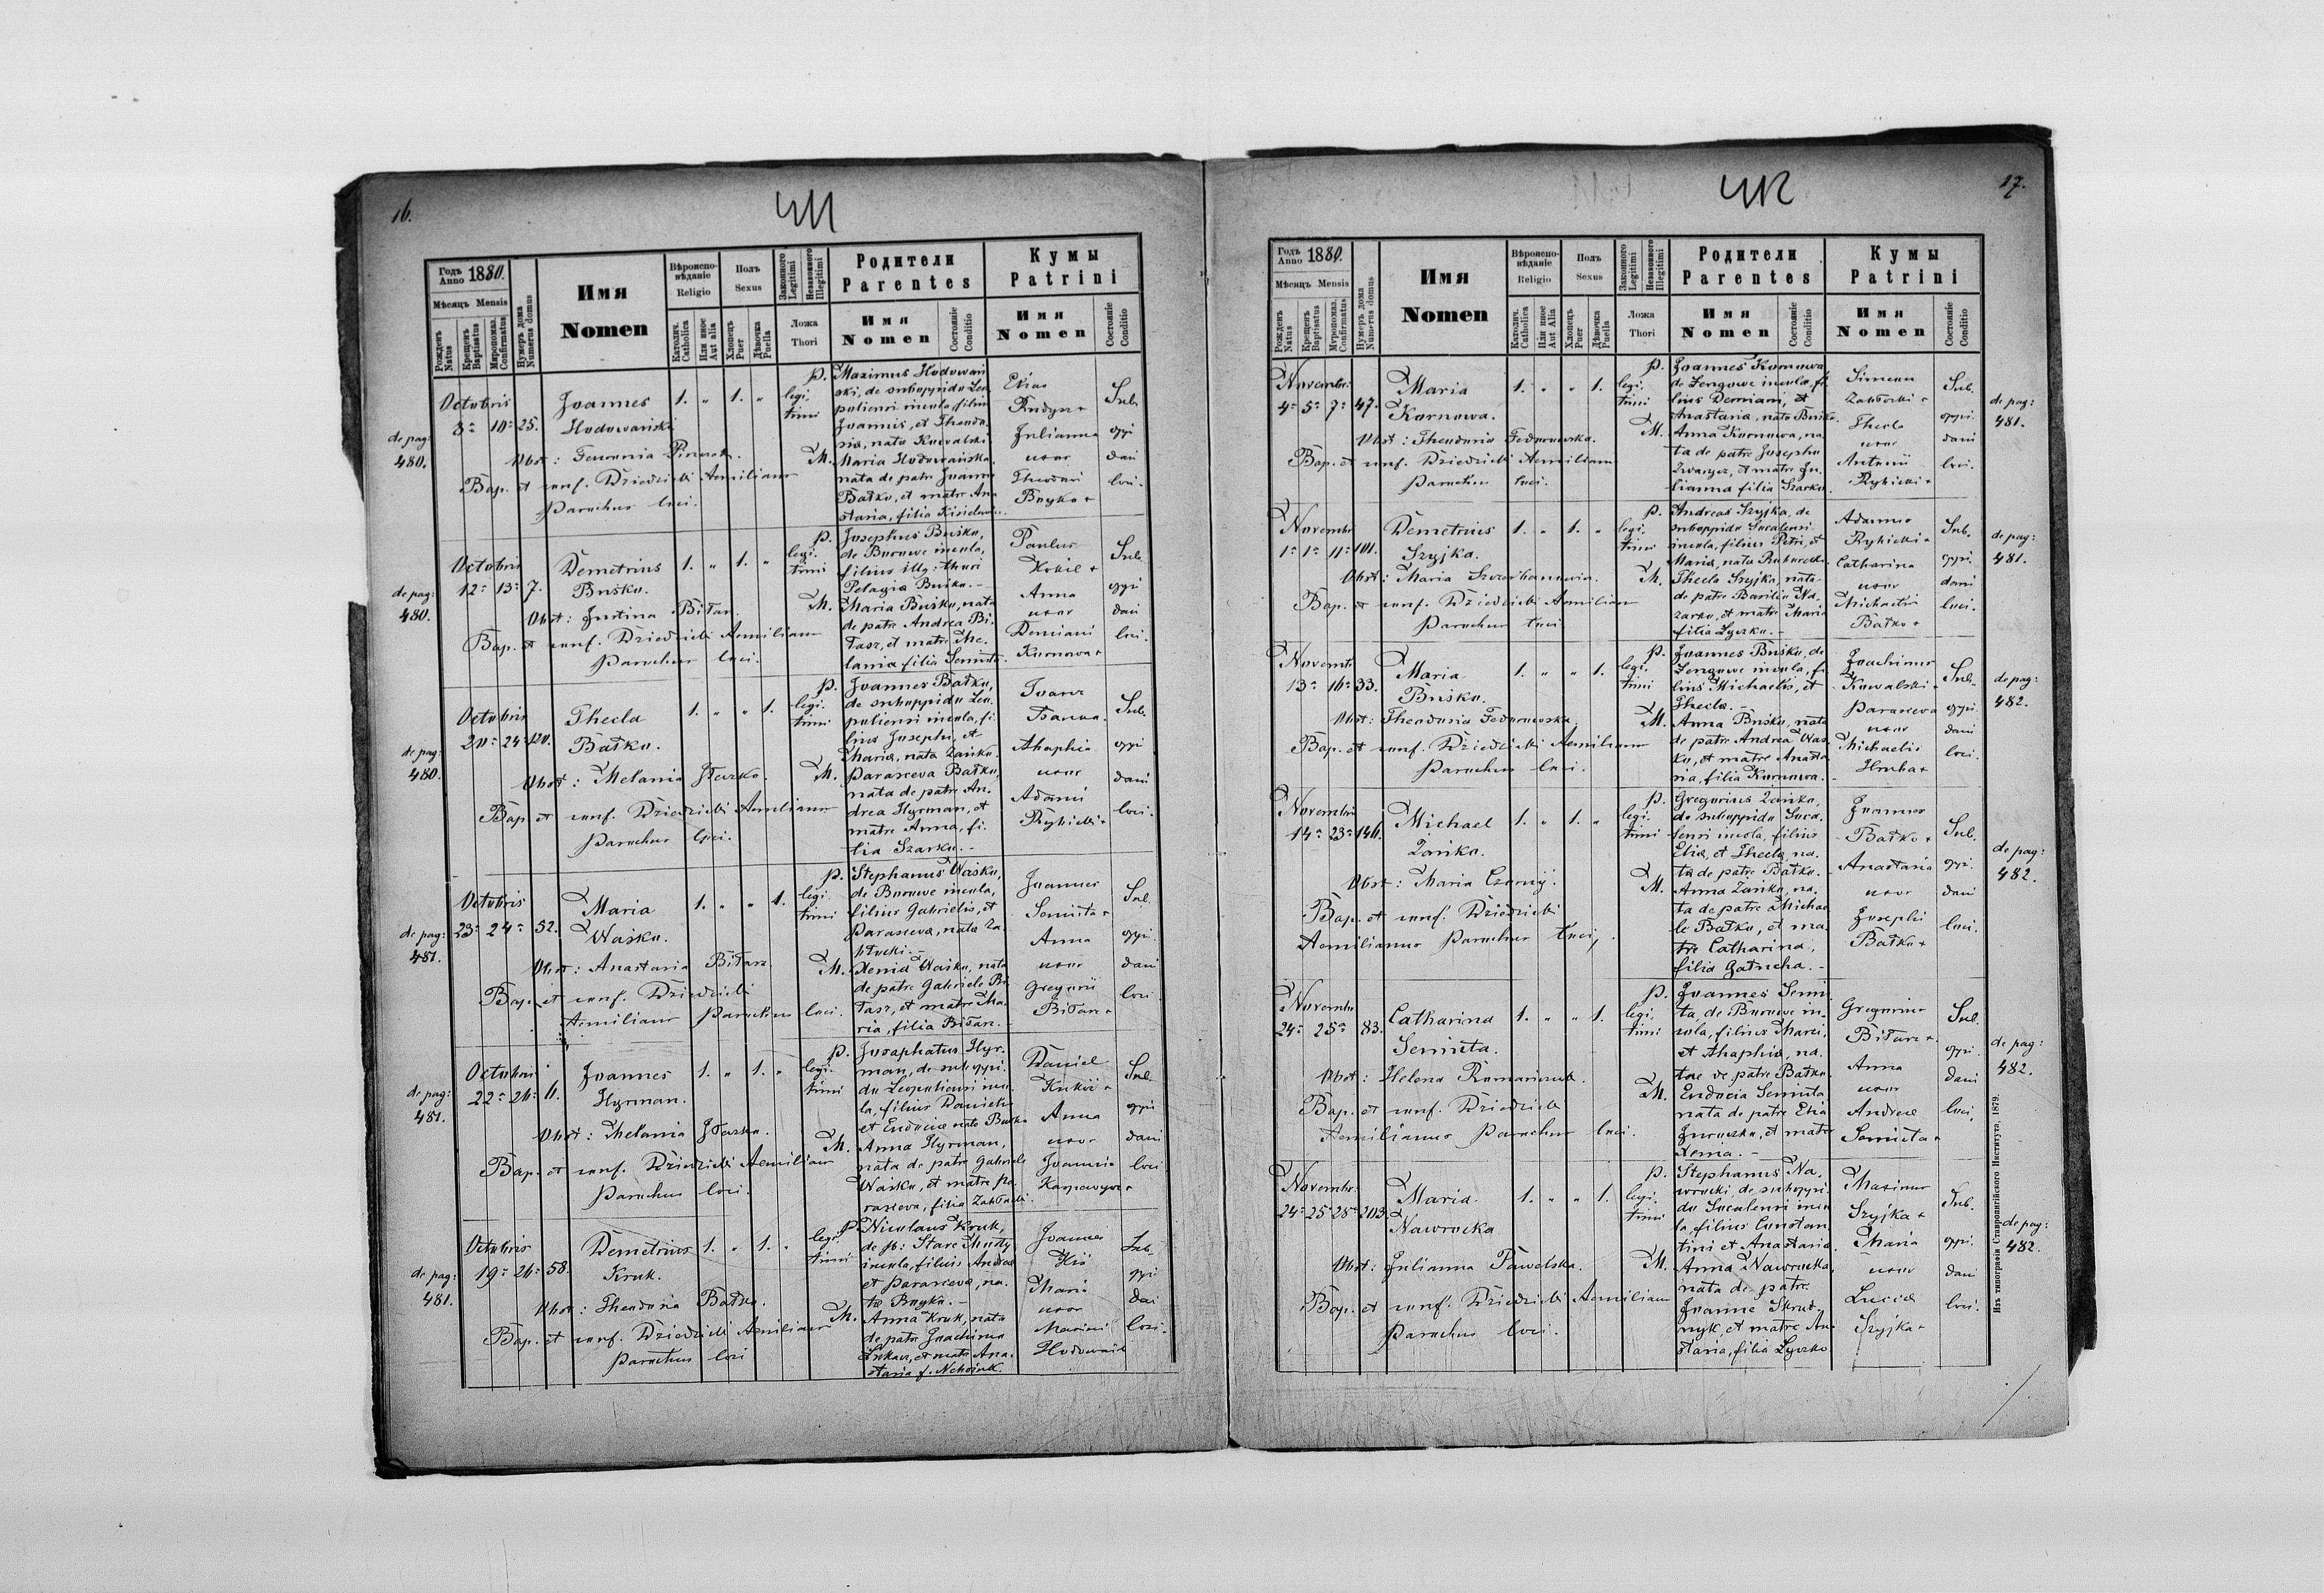 16.
411
Годъ Anno 1880.
Мѣсяцъ Mensis
Рожденъ Natus
Крещенъ Baptisatus
Миропомаз. Confirmatus
Нумеръ дома Numerus domus
Имя
Nomen
Вѣроиспо-
вѣданіе
Religio
Католич. Catholica
Или иное Aut alia
Полъ
Sexus
Хлопецъ Puer
Дѣвочка Puella
Законного Legitimi
Незаконного Illegitimi
Ложа
Thori
Родители
Parentes
Имя
Nomen
Состояніе Conditio
Кумы
Patrini
Имя
Nomen
Состояніе Conditio
de pag: 480.
Octobris
8 10 25.
Joannes
Hodowański
1. " 1. "
legi
timi
Obst:
Bap. et conf. Dziedzicki Aemilianus
Parochus loci.
P. Maximus Hodowań
ski, de suboppido Leo
poliensi incola, filius
Joannis, et Theodo
sia, nata Kowalski
M. Maria Hodowańska
nata de patre Joanne
Bałko, et matre Ana
staria, filia
Elias
Rudyn +
Julianna
uxor
Theodori
Boyko +
Sub
oppi
dani
loci.
de pag: 480.
Octobris
12 13 7.
Demetrius
Buśko.
1. " 1. "
legi
timi
Obst: Justina Biłan.
Bap. et conf. Dziedzicki Aemilianus
Parochus loci.
P. Josephus Buśko,
de Burowe incola,
filius illg: thori
Pelagia Buśko. -
M. Maria Buśko, nata
de patre Andrea Bi
łasz, et matre Me
lania filia Seniuta.
Paulus
Kobil +
Anna
uxor
Demiani
Kurnowa +
Sub
oppi
dani
loci.
de pag: 480.
Octobris
20 24 120.
Thecla
Bałko.
1. " " 1.
legi
timi
Obst: Melania
Bap et conf. Dziedzicki Aemilianus
Parochus loci.
P. Joannes Bałko,
de suboppido Leo
poliensi incola, fi
lius Josephi, et
Maria, nata Zańko.
M. Parasceva Bałko,
nata de patre An
drea Hyrman, et
matre Anna, fi
lia Szarko. -
Ahaphia
uxor
Adami
Rybicki +
Sub.
oppi
dani
loci.
de pag: 481.
Octobris
23 24 52.
Maria
Waśko.
1. " " 1.
legi
timi
Obst: Anastasia Biłan.
Bap. et conf. Dziedzicki
Aemilianus Parochus loci.
P. Stephanus Waśko,
de Burowe incola,
filius Gabrielis, et
Parasceva, nata Za
błocki. -
M. Xenia Waśko, nata
de patre Gabriele Bi
łasz, et matre Ma
ria, filia Biłan. -
Joannes
Seniuta +
Anna
uxor
Gregorii
Biłan +
Sub.
oppi.
dani
loci
de pag: 481.
Octobris
22 26 11.
Joannes
Hyrman.
1. " 1. "
legi
timi
Obst: Melania
Bap. et conf. Dziedzicki Aemilianus
Parochus loci.
P. Josaphatus Hyr
man, de suboppi
do Leopoliensi inco
la, filius Danielis
et Eudocia nata Buśko
M. Anna Hyrman,
nata de patre Gabriele
Waśko, et matre Pa
rasceva, filia Zabłocki.
Daniel
Anna
uxor
Joannis
Sub.
oppi
dani
loci
de pag: 481.
Octobris
19 26 58.
Demetrius
Kruk.
1. " 1. "
legi
timi
Obst: Theodosia Bałko.
Bap. et conf. Dziedzicki Aemilianus
Parochus loci
P. Nicolaus Kruk,
incola, filius Andrea
et Parasceva, na
ta Boyko. -
M. Anna Kruk, nata
de patre Joachimo
Łukasz, et matre Ana
stasia f.
Joannes
Maria
uxor
Maximi
Sub.
oppi
dai
loci.
17.
412
Годъ Anno 1880.
Мѣсяцъ Mensis
Рожденъ Natus
Крещенъ Baptisatus
Муропомаз. Confirmatus
Нумеръ дома Numerus domus
Имя
Nomen
Вѣроиспо-
вѣданіе
Religio
Католич. Catholica
Или иное Aut Alia
Полъ
Sexus
Хлопецъ Puer
Дѣвочка Puella
Законного Legitimi
Незаконного Illegitimi
Ложа
Thori
Родители
Parentes
Имя
Nomen
Состояніе Conditio
Кумы
Patrini
Имя
Nomen
Состояніе Conditio
Novembr:
4 5 7 47.
Maria
Kurnowa.
1. " " 1.
legi.
timi
Obst: Theodosia Fedorowska.
Bap. et conf. Dziedzicki Aemilianus
Parochus loci.
P. Joannes Kurnowa
de Zengowe incola, fi
lius Demiani, et
Anastasia, nata Buśko.
M. Anna Kurnowa, na
ta de patre Josepho
Zwarycz, et matre Ju
lianna filia Szarko.
Simeon
Zabłocki +
Thecla
uxor
Antonii
Rybicki +
Sub.
oppi.
dani
loci.
de pag: 481.
Novembr
1 1 11 101.
Demetrius
Szyjka.
1. " 1. "
legi.
timi
Obst: Maria
Bap. et conf. Dziedzicki Aemilian
Parochus loci
P. Andreas Szyjka, de
suboppido Sucalensi
incola, filius Petri, et
Maria, nata
M. Thecla Szyjka, nata
de patre Basilio Na
zarko, et matre Maria
filia Łyczko. -
Adamus
Rybicki +
Catharina
uxor
Michaelis
Bałko +
Sub.
oppi.
dani
loci.
de pag: 481.
Novembr
13 16 33.
Maria
Buśko.
1. " " 1.
legi.
timi
Obst: Theodosia Fedorowska.
Bap. et conf. Dziedzicki Aemilianus
Parochus loci.
P. Joannes Buśko, de
Zengowe incola, fi
lius Michaelis, et
Thecla. -
M. Anna Buśko, nata
de patre Andrea Was
ko, et matre Anasta
sia, filia Kurnowa. -
Joachimus
Kowalski +
Parasceva
uxor
Michaelis
Hruba +
Sub.
oppi
dani
loci.
de pag: 482.
Novembr
14 23 146.
Michael
Zańko.
1. " 1. "
legi.
timi
Obst: Maria Czornÿ.
Bap. et conf. Dziedzicki
Aemilianus Parochus loci,
P. Gregorius Zańko,
de suboppido Suca
lensi incola, filius
Elia, et Thecla, na
ta de patre Bałko. -
M. Anna Zańko, na
ta de patre Michae
le Bałko, et ma
tre Catharina,
filia Gałucha. -
Joannes
Bałko +
Anastasia
uxor
Josephi
Bałko +
Sub.
oppi.
dani
loci.
de pag: 482.
Novembr
24 25 83.
Catharina
Seniuta.
1. " " 1.
legi.
timi
Obst: Helena Romaniuk.
Bap. et conf. Dziedzicki
Aemilianus Parochus loci.
P. Joannes Seniu
ta, de Burowe in
cola, filius Marci,
et Ahaphia, na
tae de patre Bałko.
M. Eudocia Seniuta
nata de patre Elia
Juruczko, et matre
Xenia. -
Gregorius
Biłan +
Anna
uxor
Andreae
Seniuta +
Sub.
oppi.
dani
loci
de pag: 482.
Novembr:
24 25 28 203.
Maria
Nawrocka
1. " " 1.
legi.
timi
Obst: Julianna Pawelska.
Bap. et conf. Dziedzicki Aemilian
Parochus loci.
P. Stephanus Na
wrocki, de suboppi
do Sucalensi inco
la, filius Constan
tini et Anastasia.
M. Anna Nawrocka,
nata de patre
Joanne Skrut
nyk, et matre An
stasia, filia Łyczko
Maximus
Szyjka +
Maria
uxor
Lucae
Szyjka +
Sub.
oppi.
dani
loci.
de pag: 482.
Изъ типографіи Ставропигійского Института, 1879.